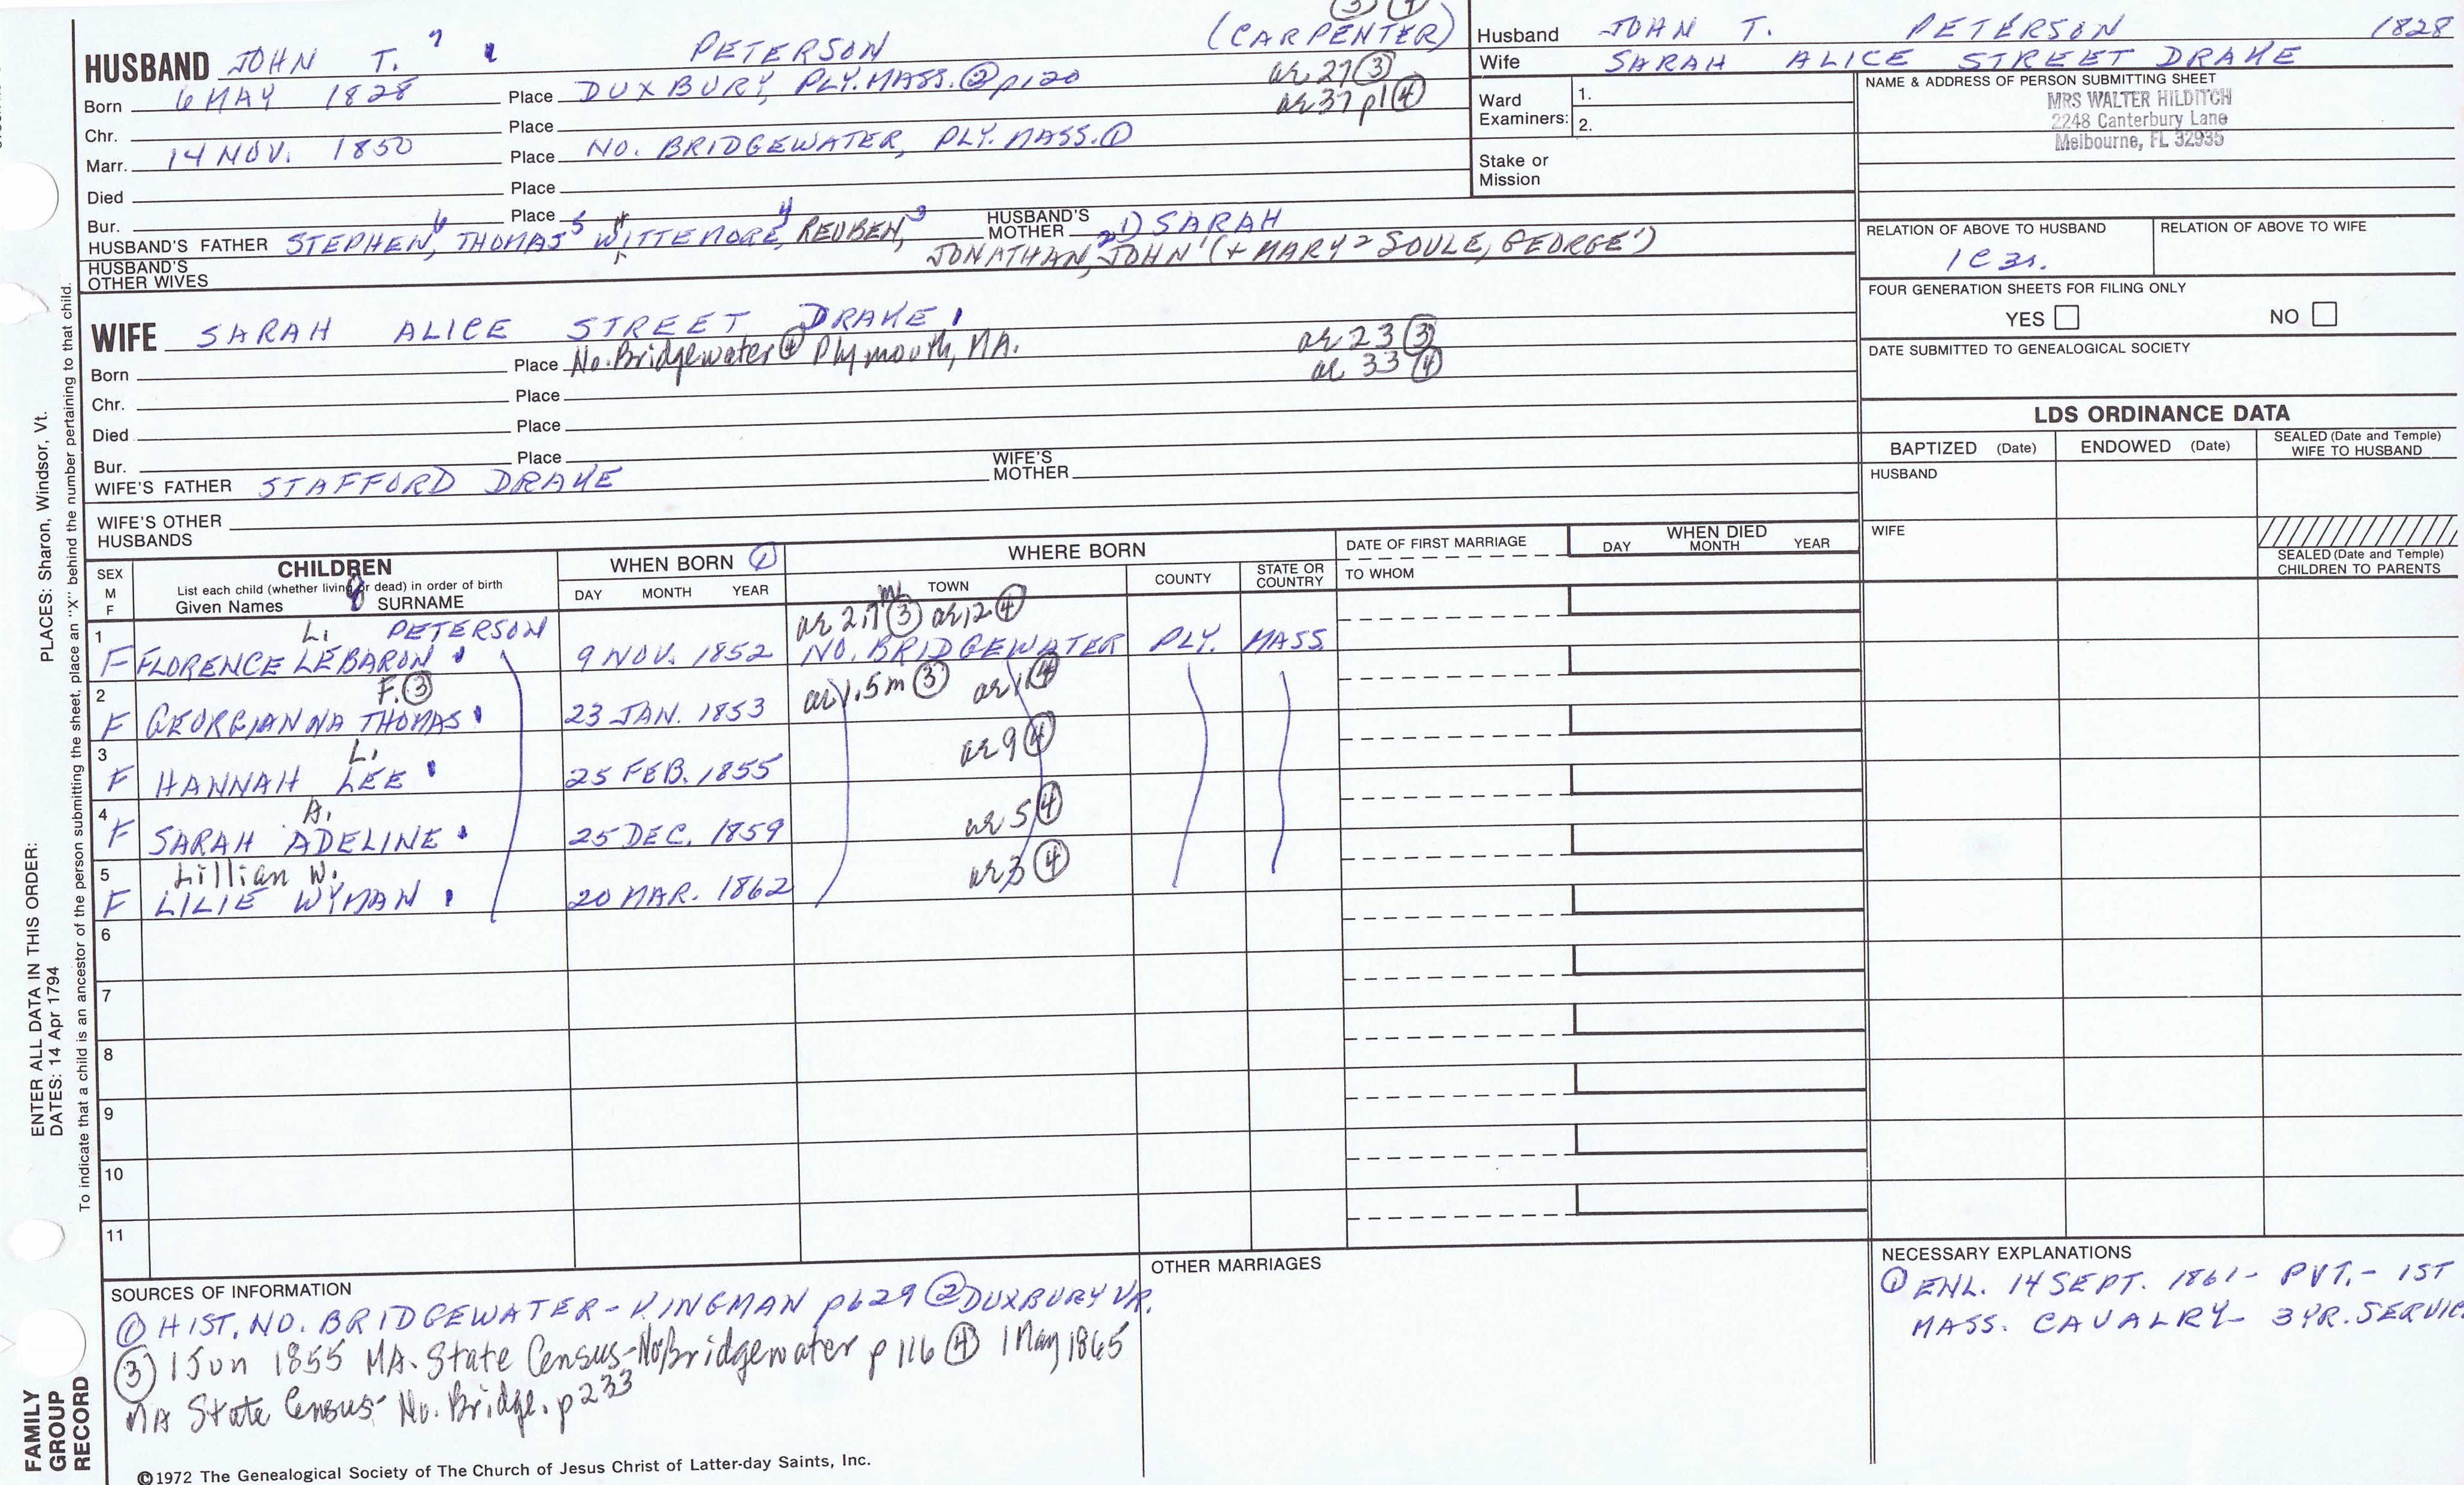 (3) (4)
HUSBAND JOHN T. 7 1 PETERSON (CARPENTER)
Born 6 MAY 1828 Place DUXBURY, PLY. MASS. (2) p120 ae 27 (3)
Chr. Place ae 37 p1 (4)
Marr. 14 NOV. 1850 Place NO. BRIDGEWATER, PLY. MASS. (1)
Died Place
Bur. Place
HUSBAND'S FATHER STEPHEN 6, THOMAS 5 WITTEMORE 4, REUBEN, 3 HUSBAND'S MOTHER 1) SARAH
JONATHAN, 2 JOHN 1 (+ MARY 2 SOULE, GEORGE 1)
HUSBAND'S OTHER WIVES
Husband JOHN T. PETERSON 1828
Wife SARAH ALICE STREET DRAKE
Ward Examiners: 1.
2.
Stake or Mission
NAME & ADDRESS OF PERSON SUBMITTING SHEET
MRS WALTER HILDITCH
2248 Canterbury Lane
Melbourne, FL 32935
RELATION OF ABOVE TO HUSBAND RELATION OF ABOVE TO WIFE
1C 3r.
FOUR GENERATION SHEETS FOR FILING ONLY
YES NO
DATE SUBMITTED TO GENEALOGICAL SOCIETY
WIFE SARAH ALICE STREET DRAKE 1
Born Place No. Bridgewater (4) Plymouth, MA. ae 23 (3)
ae 33 (4)
Chr. Place
Died Place
Bur. Place
WIFE'S FATHER STAFFORD DRAKE WIFE'S MOTHER
WIFE'S OTHER HUSBANDS
LDS ORDINANCE DATA
BAPTIZED (Date) ENDOWED (Date) SEALED (Date and Temple) WIFE TO HUSBAND
HUSBAND
WIFE
SEALED (Date and Temple) CHILDREN TO PARENTS
SEX M F
CHILDREN
List each child (whether living or dead) in order of birth
Given Names SURNAME
WHEN BORN (1)
DAY MONTH YEAR
WHERE BORN
TOWN COUNTY STATE OR COUNTRY
DATE OF FIRST MARRIAGE
TO WHOM
WHEN DIED
DAY MONTH YEAR
1 L. PETERSON ae 2,7 (3) ae 12 (4)
F FLORENCE LEBARON 9 NOV. 1852 NO. BRIDGEWATER PLY. MASS
2 F. (3) ae 1.5m (3) ae 11 (4)
F GEORGIANNA THOMAS 23 JAN. 1853
3 L. ae 9 (4)
F HANNAH LEE 25 FEB. 1855
4 A. ae 5 (4)
F SARAH ADELINE 25 DEC. 1859
5 Lillian W. ae 3 (4)
F LILIE WYMAN 20 MAR. 1862
6
7
8
9
10
11
SOURCES OF INFORMATION
(1) HIST. NO. BRIDGEWATER - KINGMAN p629 (2) DUXBURY VR.
(3) 1 Jun 1855 MA. State Census - No. Bridgewater p 116 (4) 1 May 1865
MA State Census - No. Bridge. p233
OTHER MARRIAGES
NECESSARY EXPLANATIONS
(1) ENL. 14 SEPT. 1861 - PVT. - 1ST
MASS. CAVALRY - 3 YR. SERVIC
©1972 The Genealogical Society of The Church of Jesus Christ of Latter-day Saints, Inc.
ENTER ALL DATA IN THIS ORDER:
PLACES: Sharon, Windsor, Vt.
DATES: 14 Apr 1794
To indicate that a child is an ancestor of the person submitting the sheet, place an "X" behind the number pertaining to that child.
FAMILY GROUP RECORD